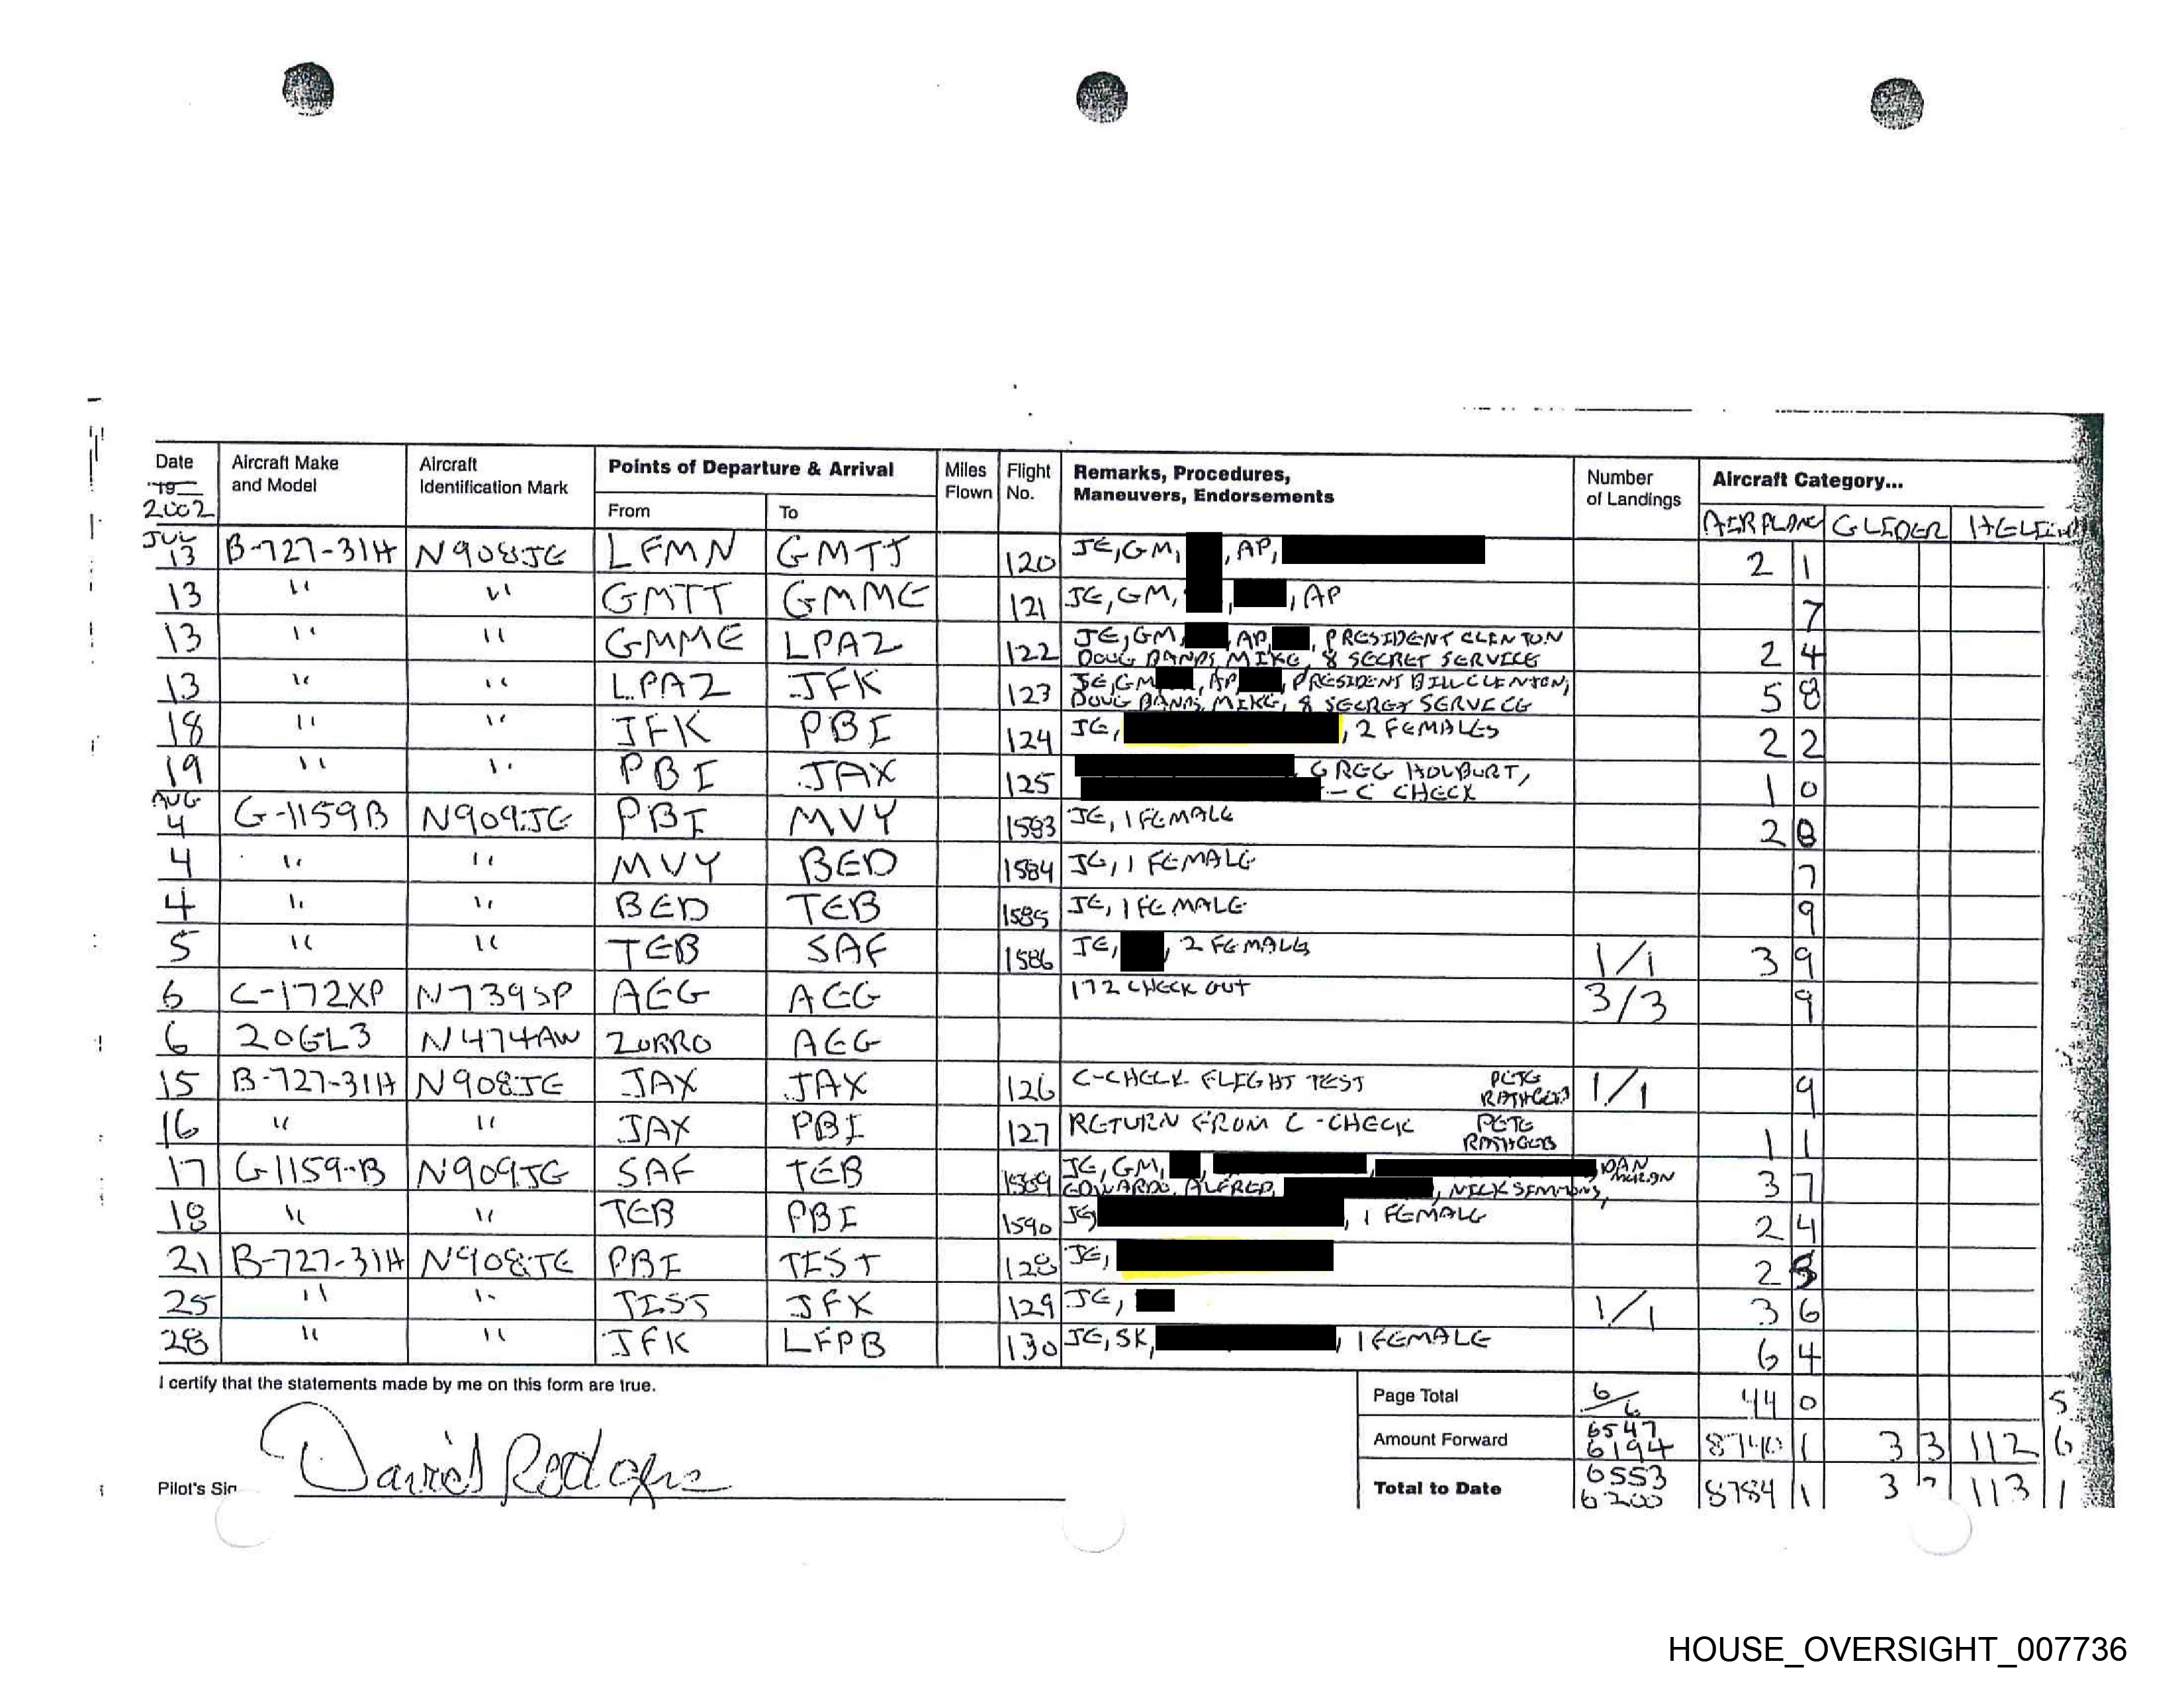 Date Aircraft Make and Model Aircraft Identification Mark Points of Departure & Arrival Miles Flown Flight No. Remarks, Procedures, Maneuvers, Endorsements Number of Landings Aircraft Category...
19
2002 From To AIRPLANE GLIDER
JUL 13 B-727-31H N908JE LFMN GMTT 120 JE, GM, , AP, 2 1
13 " " GMTT GMME 121 JE, GM, , , AP 7
13 " " GMME LPAZ 122 JE, GM, , AP, , PRESIDENT CLINTON
DOUG BANDS, MIKE, 8 SECRET SERVICE 2 4
13 " " LPAZ JFK 123 JE, GM, , AP, , PRESIDENT BILL CLINTON,
DOUG BANDS, MIKE, 8 SECRET SERVICE 5 8
18 " " JFK PBI 124 JE, , 2 FEMALES 2 2
19 " " PBI JAX 125 , GREG HOLBURT,
- C CHECK 1 0
AUG 4 G-1159B N909JE PBI MVY 1583 JE, 1 FEMALE 2 8
4 " " MVY BED 1584 JE, 1 FEMALE 7
4 " " BED TEB 1585 JE, 1 FEMALE 9
5 " " TEB SAF 1586 JE, , 2 FEMALES 1/1 3 9
6 C-172XP N739SP AEG AEG 172 CHECK OUT 3/3 9
6 206L3 N474AW ZORRO AEG
15 B-727-31H N908JE JAX JAX 126 C-CHECK FLIGHT TEST PETE RATHGEB 1/1 9
16 " " JAX PBI 127 RETURN FROM C-CHECK PETE RATHGEB 1 1
17 G-1159-B N909JE SAF TEB 1589 JE, GM, , , , DAN
EDWARDO, ALFRED, , NICK SIMMONS, 3 7
18 " " TEB PBI 1590 JE, , 1 FEMALE 2 4
21 B-727-31H N908JE PBI TIST 128 JE, 2
25 " " TIST JFK 129 JE, 1/1 3 6
28 " " JFK LFPB 130 JE, SK, , 1 FEMALE 6 4
I certify that the statements made by me on this form are true.
Page Total 6/6 44 0 5
Amount Forward 6547 6194 8740 1 3 3 112 6
Pilot's David Rodgers Total to Date 6553 6200 8784 1 3 113 1
HOUSE_OVERSIGHT_007736